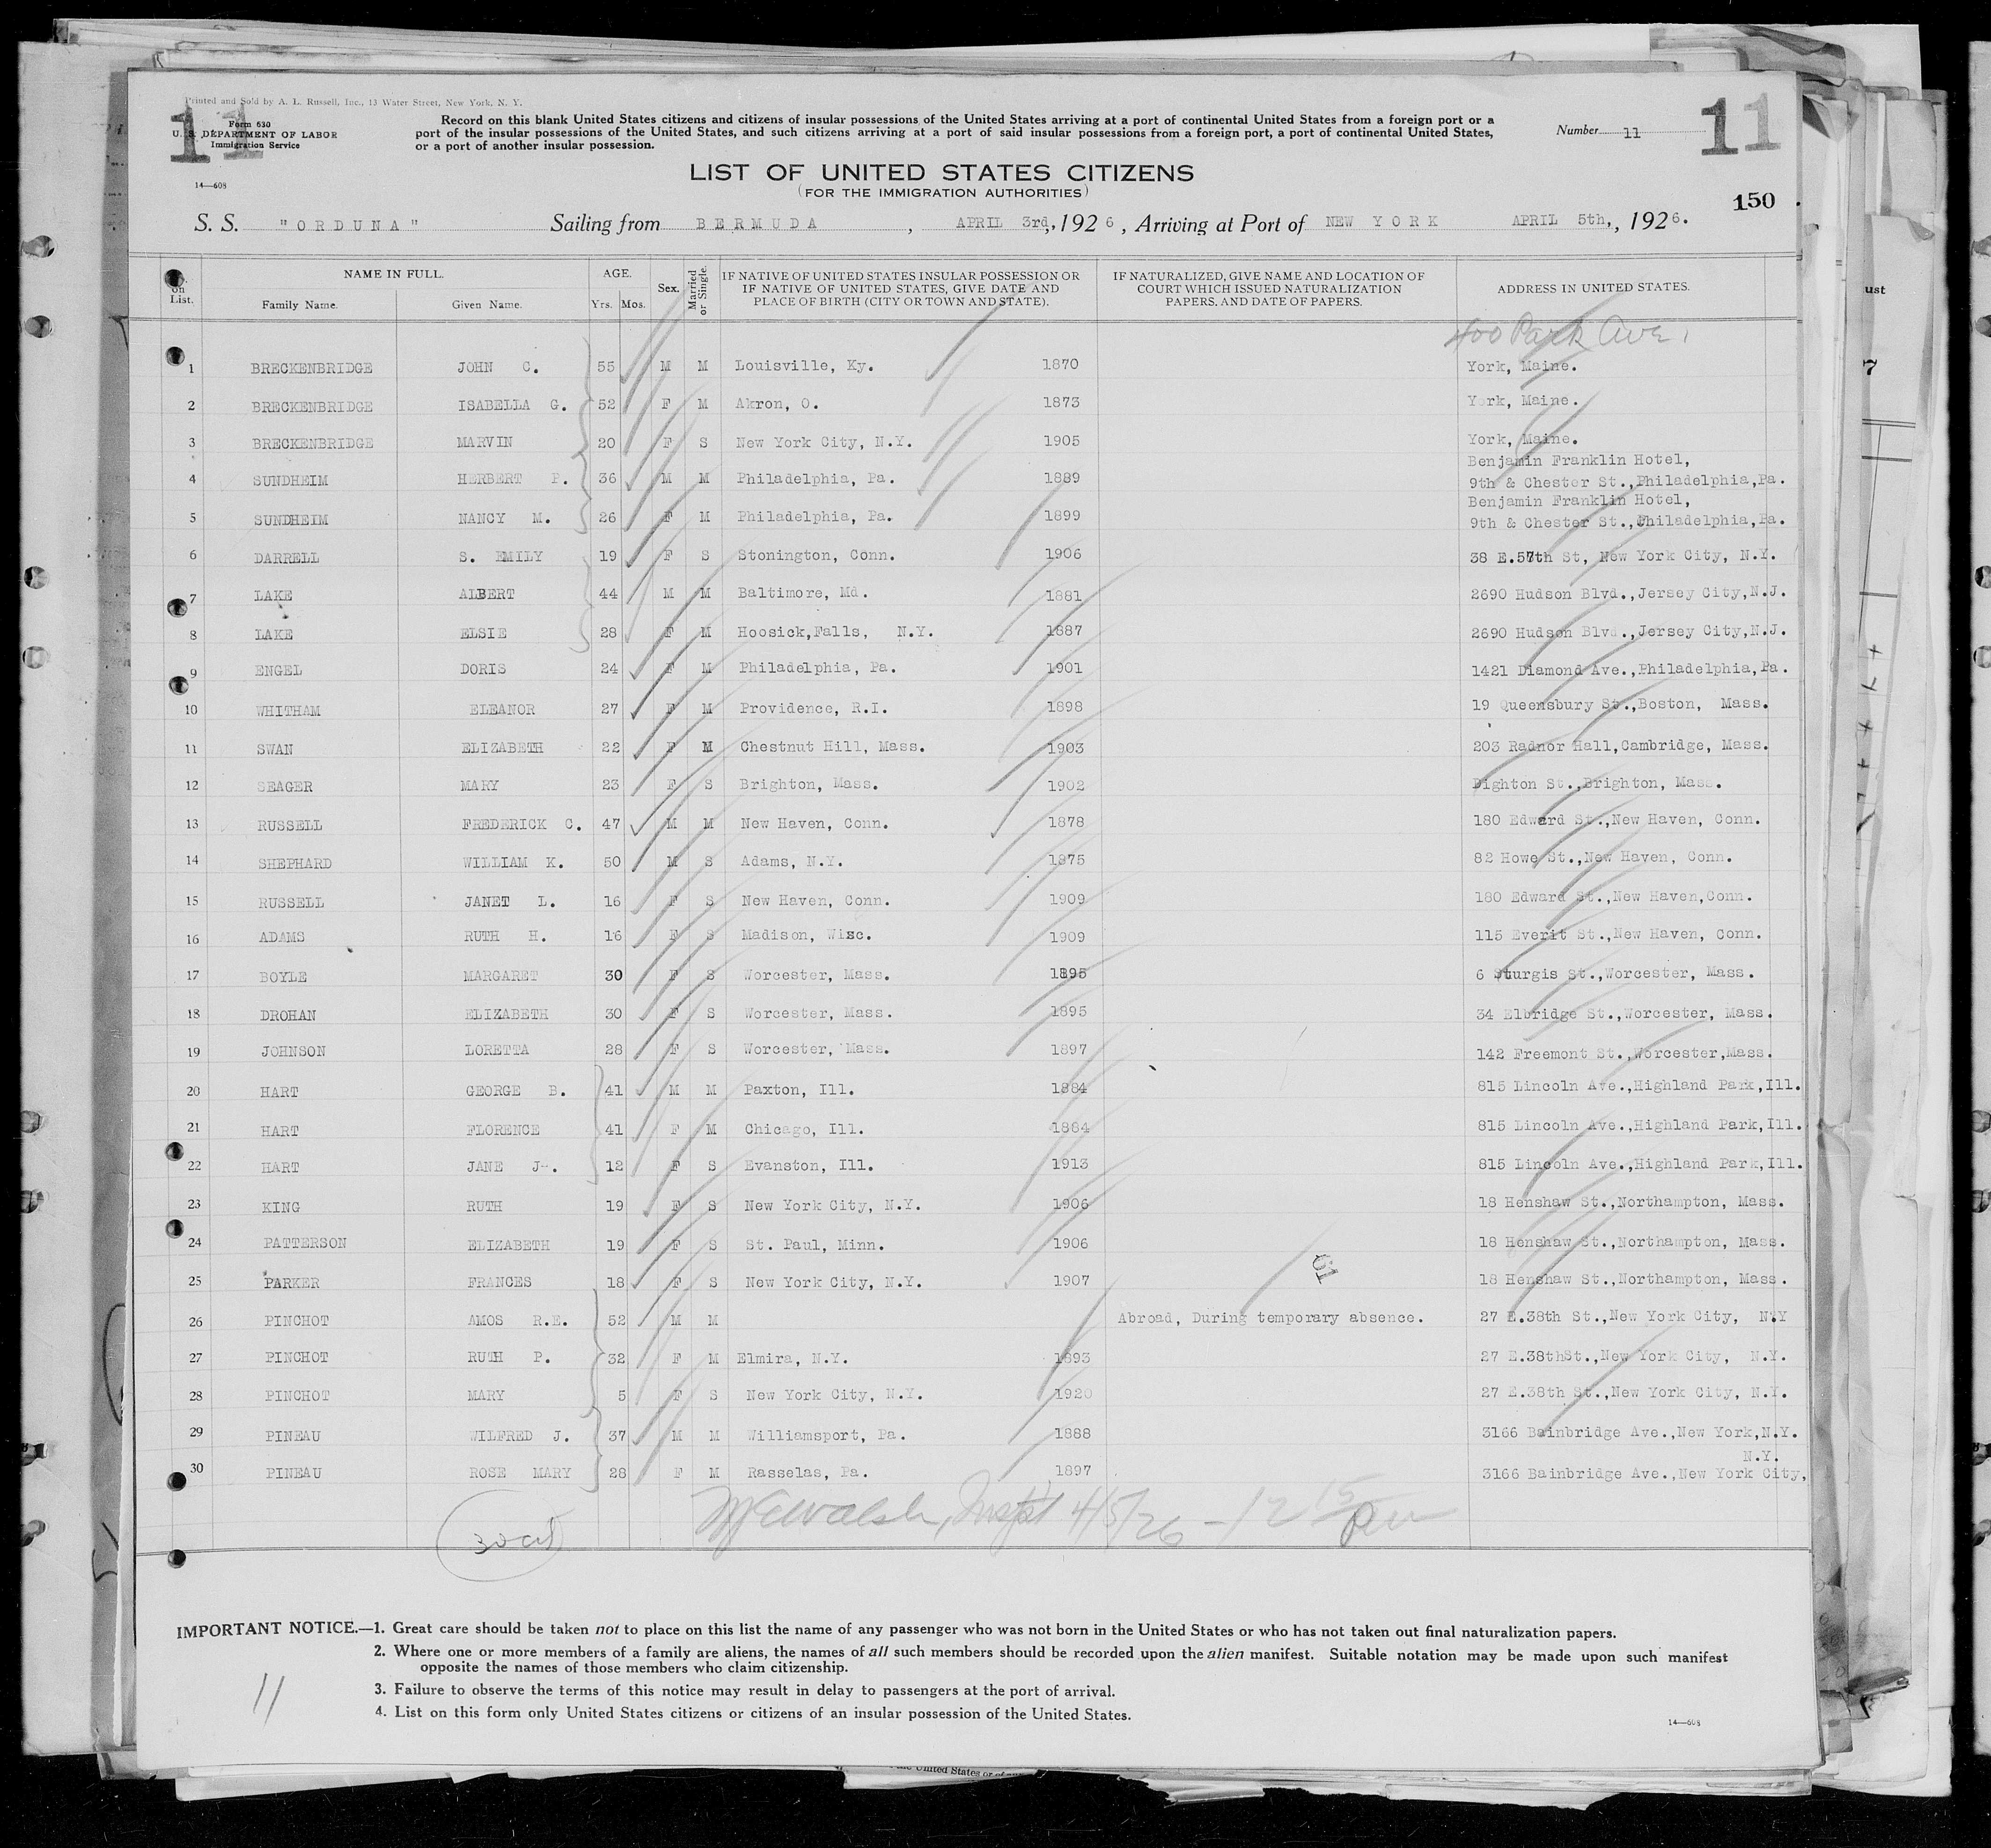 Printed and Sold by A. L. Russell, Inc., 13 Water Street, New York, N. Y.
11
Form 630
U. S. DEPARTMENT OF LABOR
Immigration Service
14—608
Record on this blank United States citizens and citizens of insular possessions of the United States arriving at a port of continental United States from a foreign port or a
port of the insular possessions of the United States, and such citizens arriving at a port of said insular possessions from a foreign port, a port of continental United States,
or a port of another insular possession.
Number 11
11
LIST OF UNITED STATES CITIZENS
(FOR THE IMMIGRATION AUTHORITIES)
150
S. S. "ORDUNA" Sailing from BERMUDA, APRIL 3rd, 1926, Arriving at Port of NEW YORK APRIL 5th, 1926.
on List. NAME IN FULL. Family Name. Given Name. AGE. Yrs. Mos. Sex. Married or Single. IF NATIVE OF UNITED STATES INSULAR POSSESSION OR IF NATIVE OF UNITED STATES, GIVE DATE AND PLACE OF BIRTH (CITY OR TOWN AND STATE). IF NATURALIZED, GIVE NAME AND LOCATION OF COURT WHICH ISSUED NATURALIZATION PAPERS, AND DATE OF PAPERS. ADDRESS IN UNITED STATES.
400 Park Ave.
1 BRECKENBRIDGE JOHN C. 55 M M Louisville, Ky. 1870 York, Maine.
2 BRECKENBRIDGE ISABELLA G. 52 F M Akron, O. 1873 York, Maine.
3 BRECKENBRIDGE MARVIN 20 F S New York City, N.Y. 1905 York, Maine.
4 SUNDHEIM HERBERT P. 36 M M Philadelphia, Pa. 1889 Benjamin Franklin Hotel, 9th & Chester St., Philadelphia, Pa.
5 SUNDHEIM NANCY M. 26 F M Philadelphia, Pa. 1899 Benjamin Franklin Hotel, 9th & Chester St., Philadelphia, Pa.
6 DARRELL S. EMILY 19 F S Stonington, Conn. 1906 38 E.57th St, New York City, N.Y.
7 LAKE ALBERT 44 M M Baltimore, Md. 1881 2690 Hudson Blvd., Jersey City, N.J.
8 LAKE ELSIE 28 F M Hoosick, Falls, N.Y. 1887 2690 Hudson Blvd., Jersey City, N.J.
9 ENGEL DORIS 24 F M Philadelphia, Pa. 1901 1421 Diamond Ave., Philadelphia, Pa.
10 WHITHAM ELEANOR 27 F M Providence, R.I. 1898 19 Queensbury St., Boston, Mass.
11 SWAN ELIZABETH 22 F M Chestnut Hill, Mass. 1903 203 Radnor Hall, Cambridge, Mass.
12 SEAGER MARY 23 F S Brighton, Mass. 1902 Dighton St., Brighton, Mass.
13 RUSSELL FREDERICK C. 47 M M New Haven, Conn. 1878 180 Edward St., New Haven, Conn.
14 SHEPHARD WILLIAM K. 50 M S Adams, N.Y. 1875 82 Howe St., New Haven, Conn.
15 RUSSELL JANET L. 16 F S New Haven, Conn. 1909 180 Edward St., New Haven, Conn.
16 ADAMS RUTH H. 16 F S Madison, Wisc. 1909 115 Everit St., New Haven, Conn.
17 BOYLE MARGARET 30 F S Worcester, Mass. 1895 6 Sturgis St., Worcester, Mass.
18 DROHAN ELIZABETH 30 F S Worcester, Mass. 1895 34 Elbridge St., Worcester, Mass.
19 JOHNSON LORETTA 28 F S Worcester, Mass. 1897 142 Freemont St., Worcester, Mass.
20 HART GEORGE B. 41 M M Paxton, Ill. 1884 815 Lincoln Ave., Highland Park, Ill.
21 HART FLORENCE 41 F M Chicago, Ill. 1884 815 Lincoln Ave., Highland Park, Ill.
22 HART JANE J. 12 F S Evanston, Ill. 1913 815 Lincoln Ave., Highland Park, Ill.
23 KING RUTH 19 F S New York City, N.Y. 1906 18 Henshaw St., Northampton, Mass.
24 PATTERSON ELIZABETH 19 F S St. Paul, Minn. 1906 18 Henshaw St., Northampton, Mass.
25 PARKER FRANCES 18 F S New York City, N.Y. 1907 18 Henshaw St., Northampton, Mass.
26 PINCHOT AMOS R.E. 52 M M Abroad, During temporary absence. 27 E.38th St., New York City, N.Y
27 PINCHOT RUTH P. 32 F M Elmira, N.Y. 1893 27 E.38thSt., New York City, N.Y.
28 PINCHOT MARY 5 F S New York City, N.Y. 1920 27 E.38th St., New York City, N.Y.
29 PINEAU WILFRED J. 37 M M Williamsport, Pa. 1888 3166 Bainbridge Ave., New York, N.Y.
30 PINEAU ROSE MARY 28 F M Rasselas, Pa. 1897 3166 Bainbridge Ave., New York City, N.Y.
Walsh, Inspt 4/5/26 - 12 15 pm
IMPORTANT NOTICE.—1. Great care should be taken not to place on this list the name of any passenger who was not born in the United States or who has not taken out final naturalization papers.
2. Where one or more members of a family are aliens, the names of all such members should be recorded upon the alien manifest. Suitable notation may be made upon such manifest
opposite the names of those members who claim citizenship.
3. Failure to observe the terms of this notice may result in delay to passengers at the port of arrival.
4. List on this form only United States citizens or citizens of an insular possession of the United States.
11
14—608